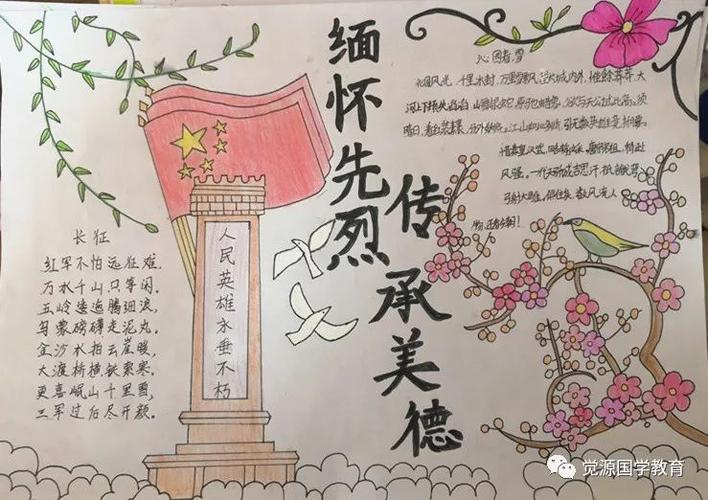 缅怀先烈
传承美德
长征
红军不怕远征难,
万水千山只等闲。
五岭逶迤腾细浪,
乌蒙磅礴走泥丸。
金沙水拍云崖暖,
大渡桥横铁索寒。
更喜岷山千里雪,
三军过后尽开颜。
人民英雄永垂不朽
沁园春·雪
北国风光,千里冰封,万里雪飘。望长城内外,惟余莽莽,大
河上下,顿失滔滔。山舞银蛇,原驰蜡象,欲与天公试比高。须
晴日,看红装素裹,分外妖娆。江山如此多娇,引无数英雄竞折腰。
惜秦皇汉武,略输文采,唐宗宋祖,稍逊
风骚。一代天骄成吉思汗,只识弯弓
射大雕。俱往矣,数风流人
物,还看今朝!
觉源国学教育